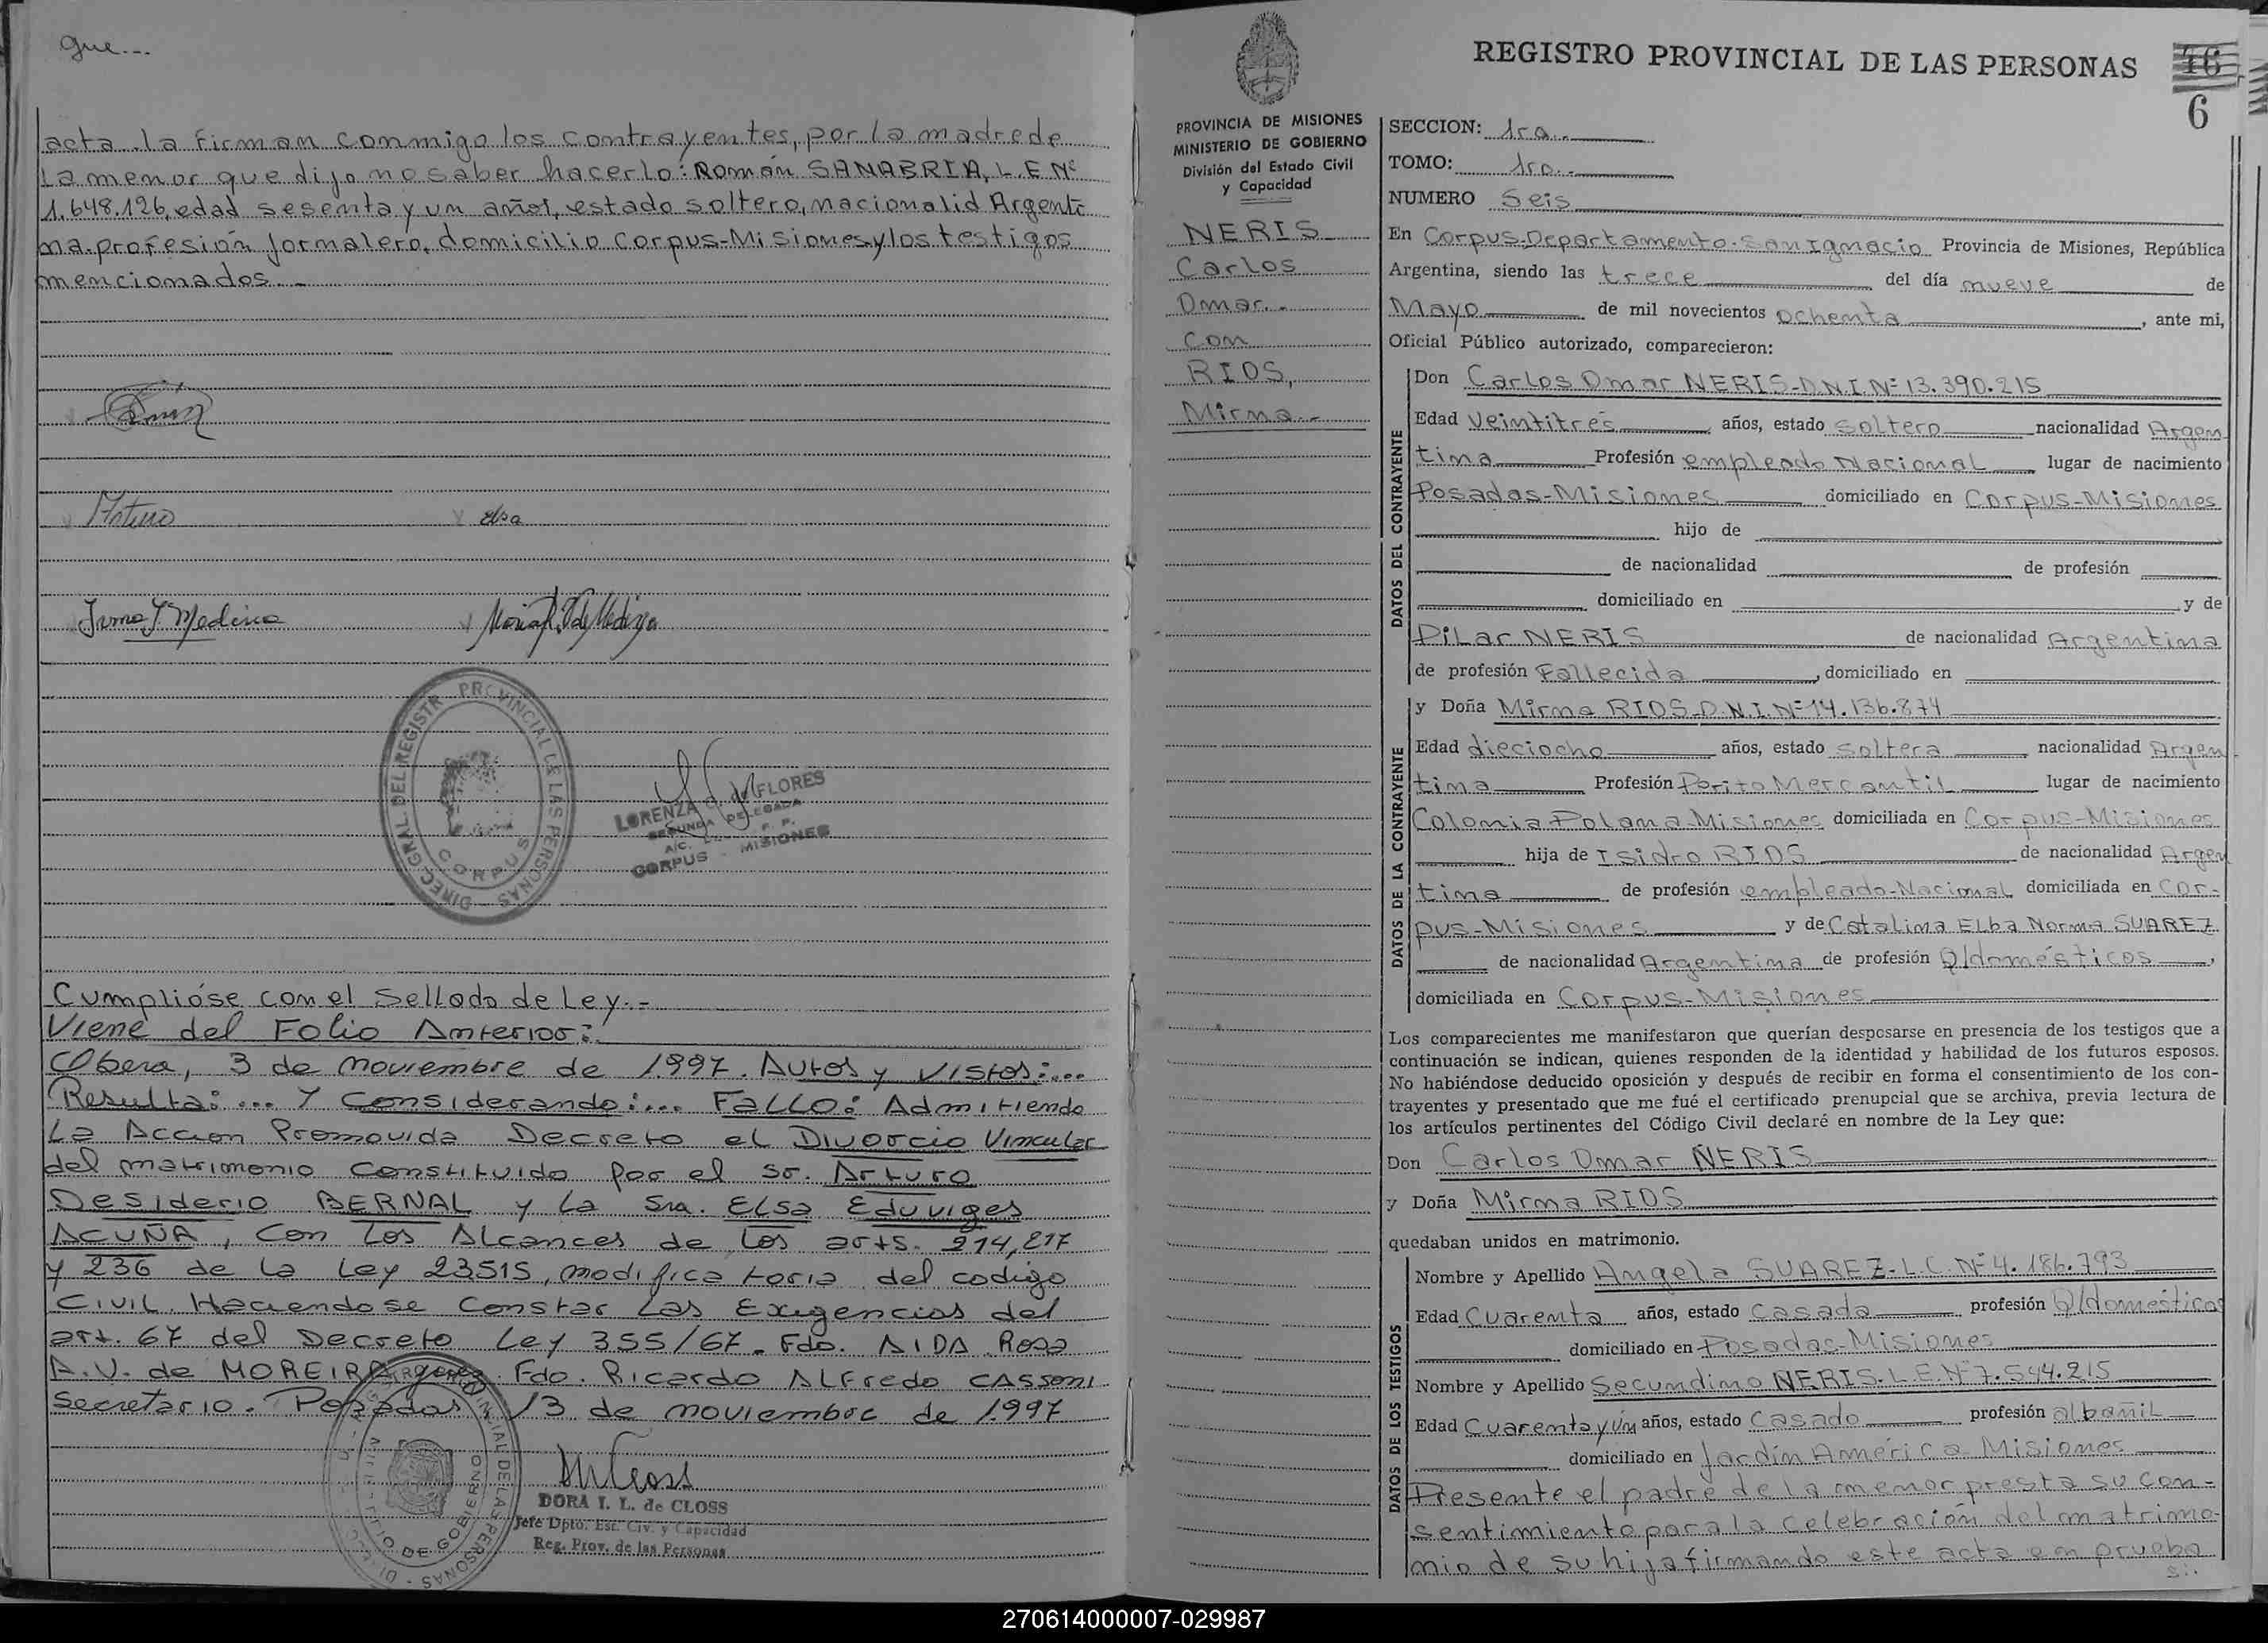 que...
acta.la firman conmigo los contrayentes, por la madre de
La menor que dijo no saber hacerlo: Román SANABRIA, L.E Nº
1.648.126, edad sesenta y un años, estado soltero, nacionalid Argenti
na. profesión jornalero, domicilio Corpus-Misiones y los testigos
mencionados.-
Arturo Elsa
Medina
PROVINCIAL DE LAS PERSONAS - DIREC. GRAL. DEL REGISTR
CORPUS
LORENZA FLORES
SEGUNDA DELEGADA
A/C.
CORPUS - MISIONES
Cumplióse con el Sellado de Ley.-
Viene del Folio Anterior:
Obera, 3 de noviembre de 1.997. Autos y Vistos:...
Resulta:... Y Considerando:... FALLO: Admitiendo
La Accion Promovida Decreto el Divorcio Vincular
del matrimonio Constituido por el Sr. Arturo
Desiderio BERNAL y La Sra. ELSa Eduviges
ACUÑA, Con Los Alcances de Los arts. 214, 217
y 236 de La Ley 23515, modificatoria del codigo
Civil. Haciendose Constar Las Exigencias del
art. 67 del Decreto Ley 355/67. Fdo. AIDA Rosa
A.V. de MOREIRA Fdo. Ricardo ALFredo CASSoni
Secretario. Posadas 13 de noviembre de 1.997
DORA I. L. de CLOSS
Jefe Dpto. Est. Civ. y Capacidad
Reg. Prov. de las Personas
REGISTRO PROVINCIAL DE LAS PERSONAS
16
6
PROVINCIA DE MISIONES
MINISTERIO DE GOBIERNO
División del Estado Civil
y Capacidad
NERIS
Carlos
Omar.-
Con
RIOS,
Mirna.-
SECCION: 1ra.-
TOMO: 1ro.-
NUMERO Seis
En Corpus-Departamento-San Ignacio Provincia de Misiones, República
Argentina, siendo las trece del día nueve de
Mayo de mil novecientos ochenta, ante mi,
Oficial Público autorizado, comparecieron:
DATOS DEL CONTRAYENTE
Don Carlos Omar NERIS-D.N.I.Nº 13.390.215
Edad Veintitrés años, estado soltero nacionalidad Argen
tina Profesión empleado Nacional lugar de nacimiento
Posadas-Misiones domiciliado en Corpus-Misiones
hijo de
de nacionalidad de profesión
domiciliado en y de
Pilar NERIS de nacionalidad Argentina
de profesión Fallecida, domiciliado en
DATOS DE LA CONTRAYENTE
y Doña Mirna RIOS-D.N.I.Nº 14.136.874
Edad dieciocho años, estado soltera nacionalidad Argen
tina Profesión Perito Mercantil lugar de nacimiento
Colonia Polana-Misiones domiciliada en Corpus-Misiones
hija de Isidro RIOS de nacionalidad Argen
tina de profesión empleado-Nacional domiciliada en Cor-
pus-Misiones y de Catalina Elba Norma SUAREZ
de nacionalidad Argentina de profesión Q/domésticos,
domiciliada en Corpus-Misiones
Los comparecientes me manifestaron que querían desposarse en presencia de los testigos que a
continuación se indican, quienes responden de la identidad y habilidad de los futuros esposos.
No habiéndose deducido oposición y después de recibir en forma el consentimiento de los con-
trayentes y presentado que me fué el certificado prenupcial que se archiva, previa lectura de
los artículos pertinentes del Código Civil declaré en nombre de la Ley que:
Don Carlos Omar NERIS
y Doña Mirna RIOS
quedaban unidos en matrimonio.
DATOS DE LOS TESTIGOS
Nombre y Apellido Angela SUAREZ-L.C.Nº 4.186.793
Edad Cuarenta años, estado Casada profesión Q/domésticos
domiciliado en Posadas-Misiones
Nombre y Apellido Secundino NERIS-L.E.Nº 7.544.215
Edad Cuarenta y Un años, estado Casado profesión albañil
domiciliado en Jardín América-Misiones
Presente el padre de la menor presta su con-
sentimiento para la celebración del matrimo-
nio de su hija firmando este acta en prueba
si..
270614000007-029987